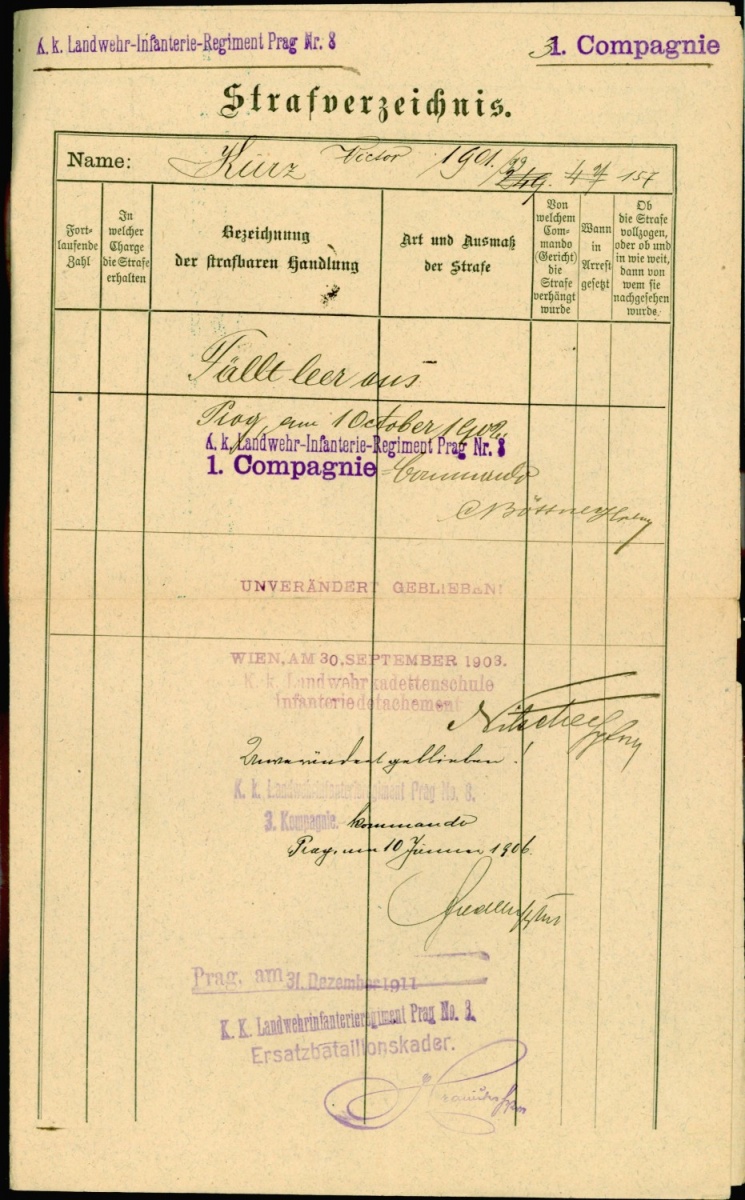 K. k. Landwehr-Infanterie-Regiment Prag Nr. 8
31. Compagnie
Strafverzeichnis.
Name: Kurz Victor 1901. 157
Fort-
laufende
Zahl
In
welcher
Charge
die Strafe
erhalten
Bezeichnung
der strafbaren Handlung
Art und Ausmaß
der Strafe
Von
welchem
Com-
mando
(Gericht)
die
Strafe
verhängt
wurde
Wann
in
Arrest
gesetzt
Ob
die Strafe
vollzogen,
oder ob und
in wie weit,
dann von
wem sie
nachgesehen
wurde.
Fällt leer aus
Prag, am 1 October 1902
K. k. Landwehr-Infanterie-Regiment Prag Nr. 8
1. Compagnie Commando
UNVERÄNDERT GEBLIEBEN!
WIEN, AM 30. SEPTEMBER 1903.
K. k. Landwehrkadettenschule
Infanteriedetachement
Nitsche
Unverändert geblieben!
K. k. Landwehrinfanterieregiment Prag No. 8.
3. Kompagnie. kommando
Prag, am 10 Jänner 1906.
Prag, am 31. Dezember 1911
K. K. Landwehrinfanterieregiment Prag No. 8.
Ersatzbataillonskader.